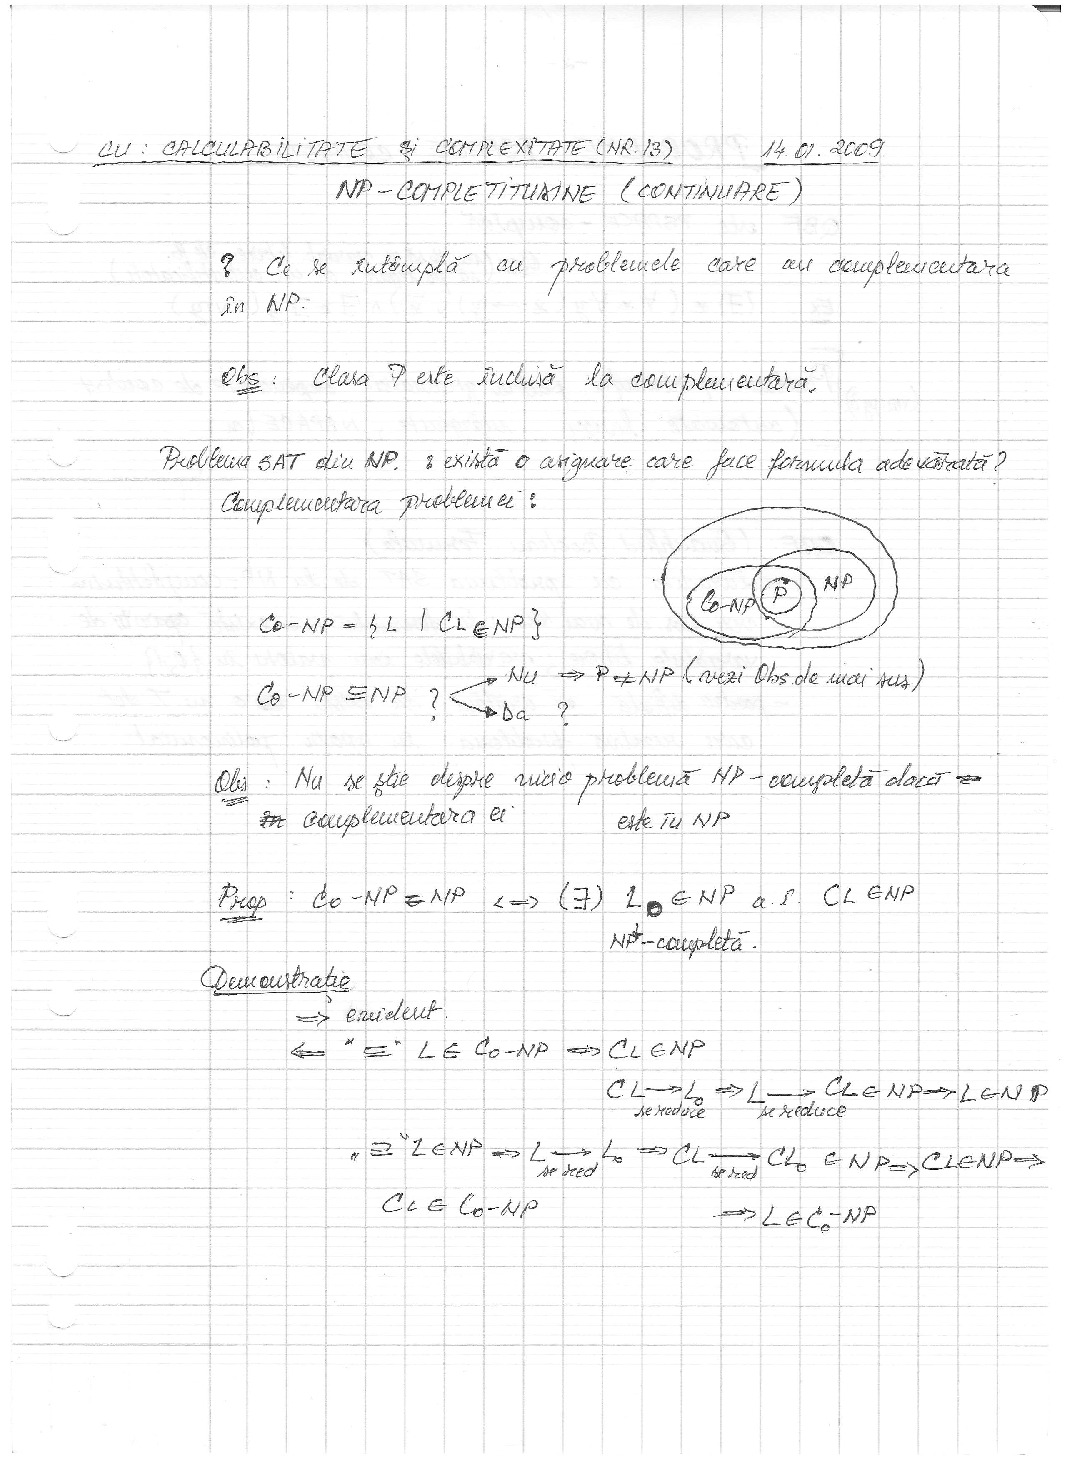 CU : CALCULABILITATE și COMPLEXITATE (NR.13) 14.01.2009
NP-COMPLETITUDINE (CONTINUARE)
? Ce se întâmplă cu problemele care au complementara
în NP.
Obs : Clasa P este închisă la complementară.
Problema SAT din NP. : există o asignare care face formula adevărată?
Complementara problemei :
Co-NP P NP
Co-NP = { L | CL ∈ NP }
Co-NP = NP ? Nu ⇒ P ≠ NP (vezi Obs de mai sus)
Da ?
Obs : Nu se știe despre nicio problemă NP-completă dacă
complementara ei este în NP
Prop : Co-NP = NP <=> (∃) L₀ ∈ NP a.î. CL ∈ NP
NP-completă.
Demonstrație
⇒ evident.
⇐ "⊆" L ∈ Co-NP ⇒ CL ∈ NP
CL → L₀ ⇒ L → CL₀ ∈ NP ⇒ L ∈ NP
se reduce se reduce
"⊇" L ∈ NP ⇒ L → L₀ ⇒ CL → CL₀ ∈ NP ⇒ CL ∈ NP ⇒
se red se red
CL ∈ Co-NP ⇒ L ∈ Co-NP